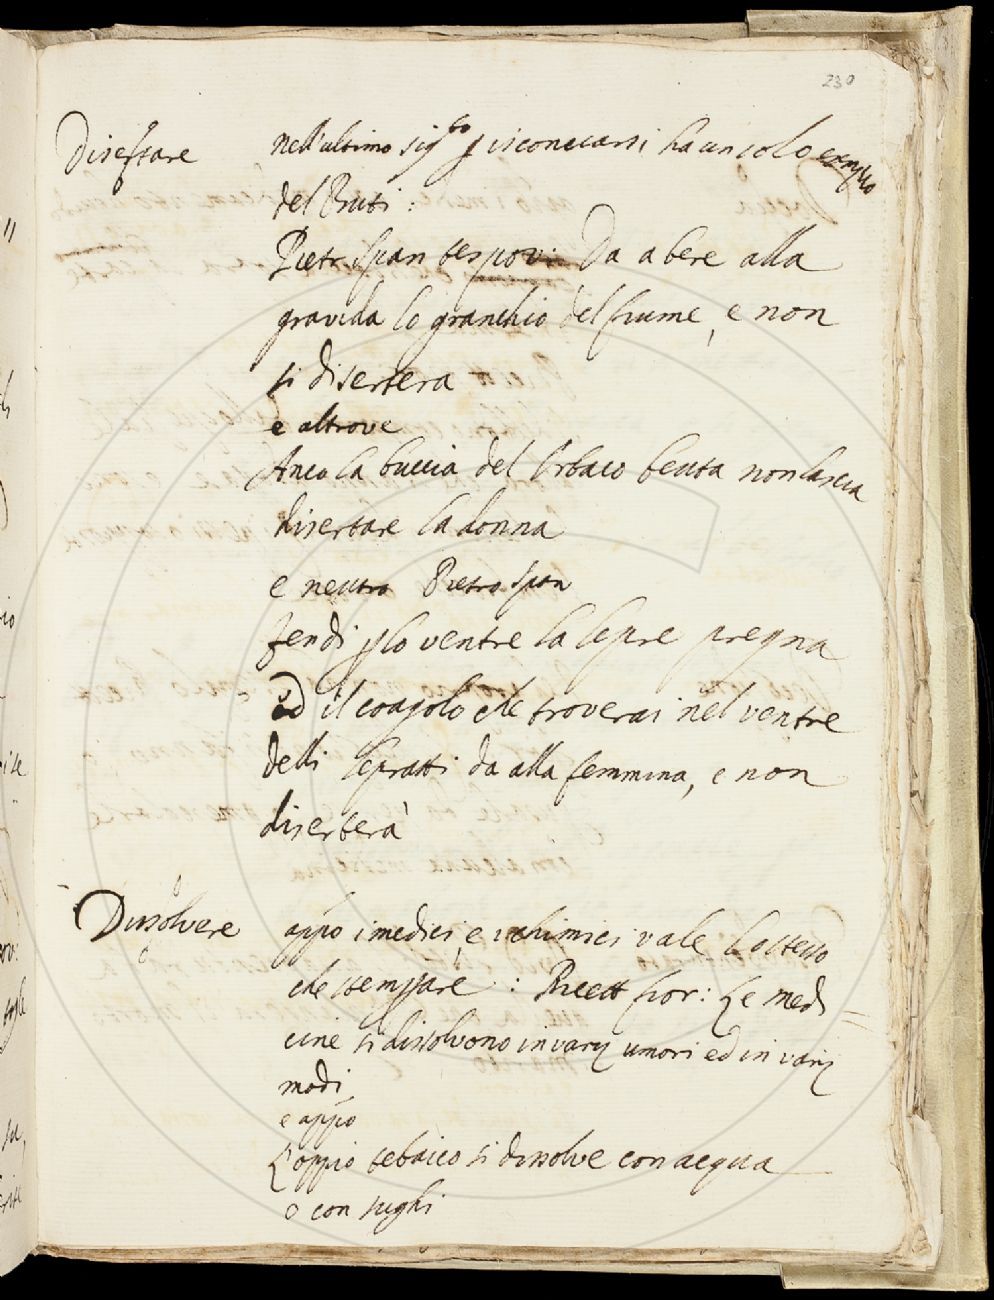 230
Disertare nell'ultimo sig.to p isconciarsi ha un solo exemplo
del Buti:
Pietr Span tes pov: Da a bere alla
gravida lo granchio del fiume, e non
si disertera
e altrove
Anco la buccia del Orbaco beuta non lascia
disertare la donna
e neutro Pietro Span
fendi p lo ventre la lepre pregna
ed il coagolo che troverai nel ventre
delli lepratti da alla femmina, e non
diserterà
Dissolvere appo i medici, e i chimici vale lo stesso
che stemprare: Ricett fior: Le medi
cine si dissolvono in varij umori ed in varij
modi
e appo
L'oppio tebaico si dissolve con acqua
o con sughi